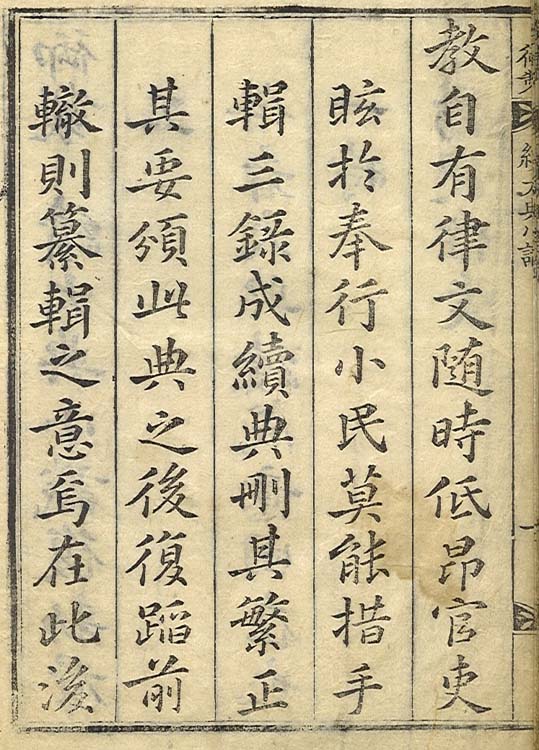 教自有律文随時低昂官吏
眩於奉行小民莫能措手
輯三錄成續典刪其繁正
其要頒此典之後復蹈前
轍則纂輯之意焉在此後